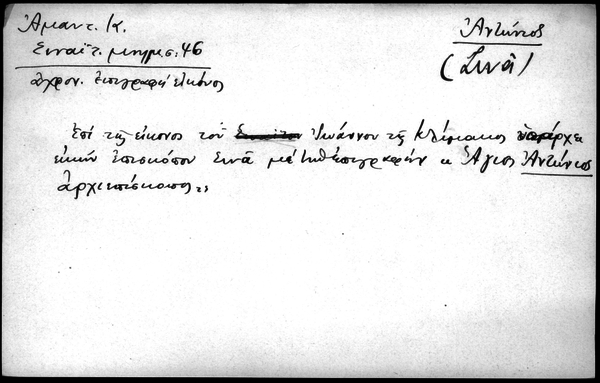 Ἀμαντ. Κ.
Σιναϊτ. μνημεῖ: 46
ἀχρον. ἐπιγραφή εἰκόνος
Ἀντώνιος
(Σινᾶ)
Ἐπί τῆς εἰκόνος τοῦ Ἰωάννου τῆς Κλίμακος ὑπάρχει
εἰκών ἐπισκόπου Σινᾶ μέ τήν ἐπιγραφήν Ἅγιος Ἀντώνιος
ἀρχιεπίσκοπος